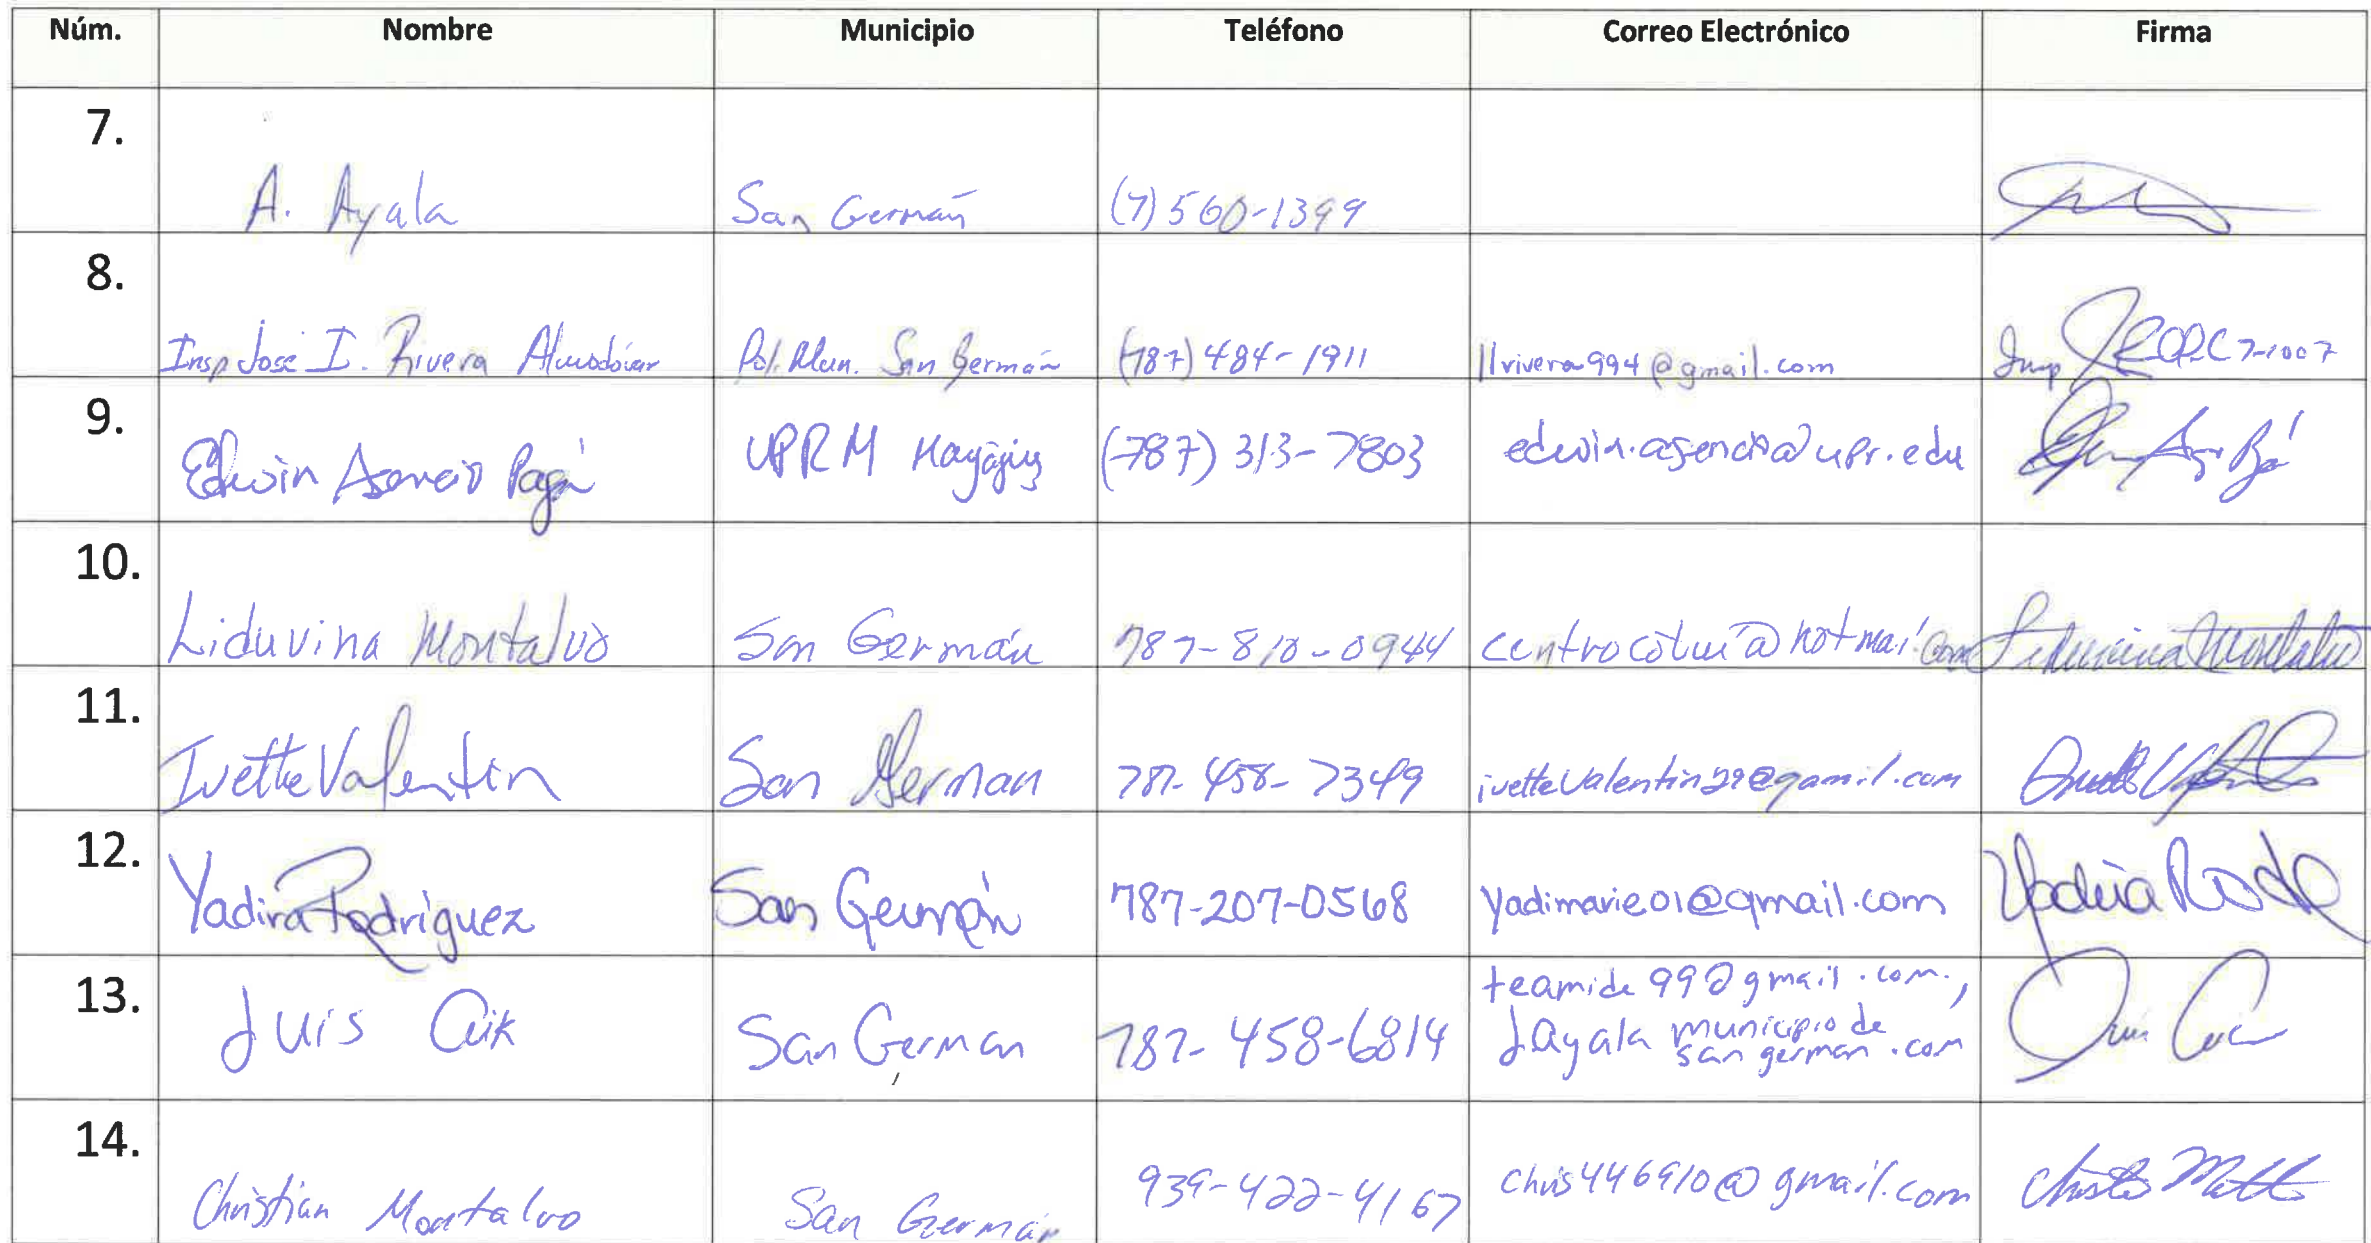 Núm. Nombre Municipio Teléfono Correo Electrónico Firma
7. A. Ayala San Germán (7) 560-1399
8. Insp José I. Rivera Almodóvar Pol. Mun. San Germán (787) 484-1911 llrivera994@gmail.com Insp 7-1007
9. Edwin Asencio Pagán UPRM Mayagüez (787) 313-7803 edwin.asencio@upr.edu
10. Liduvina Montalvo San Germán 787-810-0944 Liduvina Montalvo
11. Ivette Valentin San German 787-458-7349 ivettevalentin29@gamil.com
12. Yadira Rodríguez San Germán 787-207-0568 yadimarie01@gmail.com Yadira Rod
13. Luis San German 787-458-6814 teamide99@gmail.com.,
JAyala municipio de
san german .com
14. Christian Montalvo San Germán 939-422-4167 chris446910@gmail.com